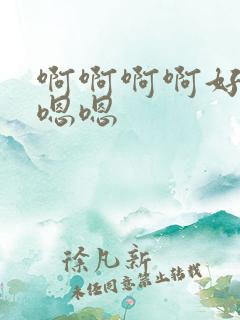 啊啊啊啊好
嗯嗯
徐凡新
未经同意禁止转载